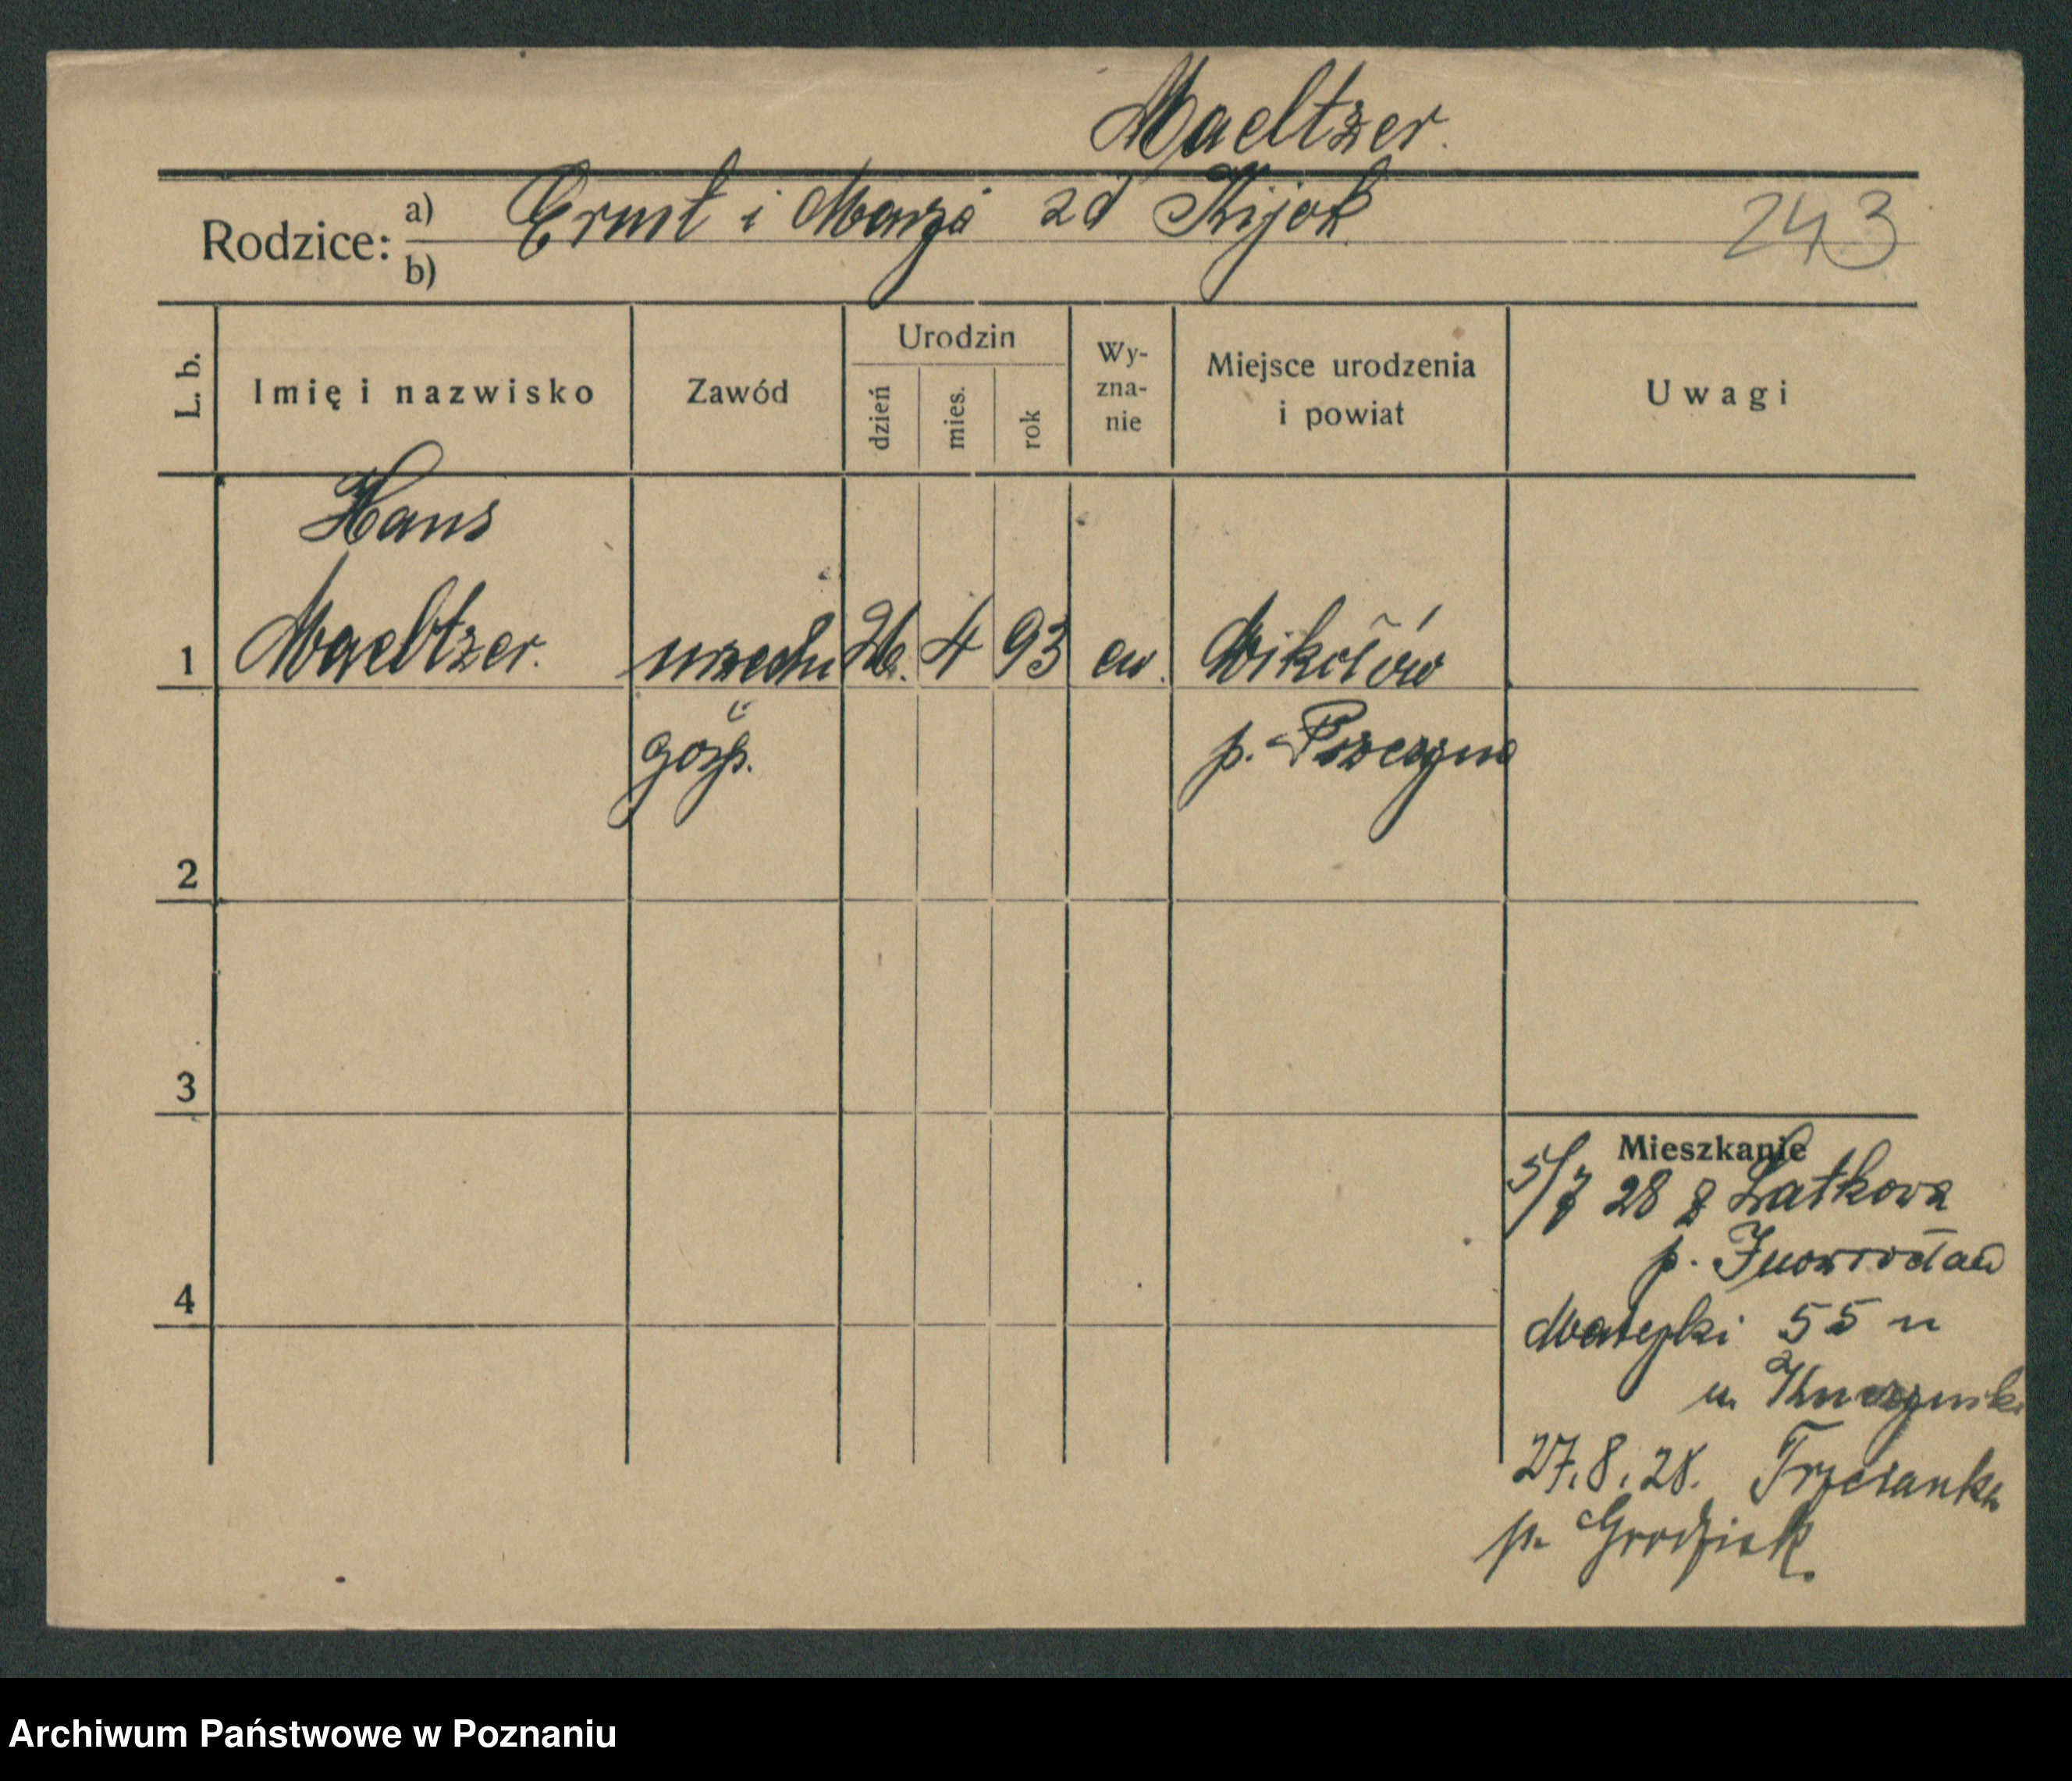 Maeltzer.
Rodzice: a) Ernst i Marja zd Kijok 243
b)
L. b. Imię i nazwisko Zawód Urodzin dzień mies. rok Wy-zna-nie Miejsce urodzenia i powiat Uwagi
Hans
1 Maeltzer. urzedn 26. 4 93 ew. Mikołów
gosp. p. Pszczyna
2
3
Mieszkanie
5/7 28 z Łatkowa
p. Inowrocław
4
Matejki 55 u
u.
27.8.28. Trzcianka
p. Grodzisk
Archiwum Państwowe w Poznaniu